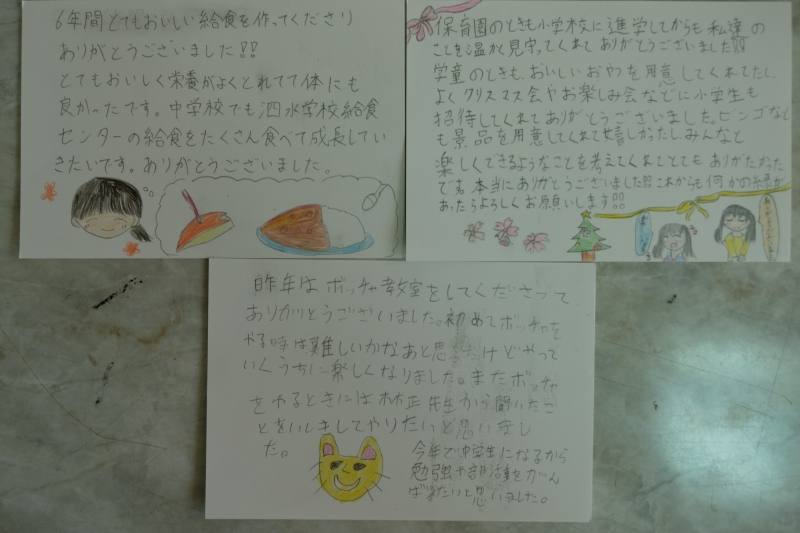 6年間とてもおいしい給食を作ってくださり
ありがとうございました!!
とてもおいしく栄養がよくとれてて体にも
良かったです。中学校でも泗水学校給食
センターの給食をたくさん食べて成長してい
きたいです。ありがとうございました。
保育園のときも小学校に進学してからも私達の
ことを温かく見守ってくれてありがとうございました!!
学童のときも、おいしいおやつを用意してくれてたし
よくクリスマス会やお楽しみ会などに小学生も
招待してくれてありがとうございました。ビンゴなど
も景品を用意してくれて嬉しかったし、みんなと
楽しくできるようなことを考えてくれてとてもありがたかった
です。本当にありがとうございました!!これからも何かの縁が
あったらよろしくお願いします!!
昨年はボッチャ教室をしてくださって
ありがとうございました。初めてボッチャを
やる時は難しいかなあと思ったけどやって
いくうちに楽しくなりました。またボッチャ
をやるときには林正先生から聞いたこ
とをいかしてやりたいと思いまし
た。
今年で中学生になるから
勉強や部活動をがん
ばりたいと思いました。